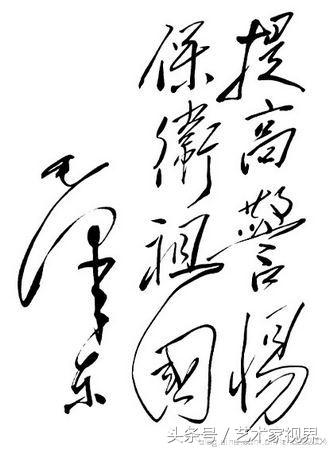 提高警惕
保衛祖國
毛泽东
头条号/艺术家视界